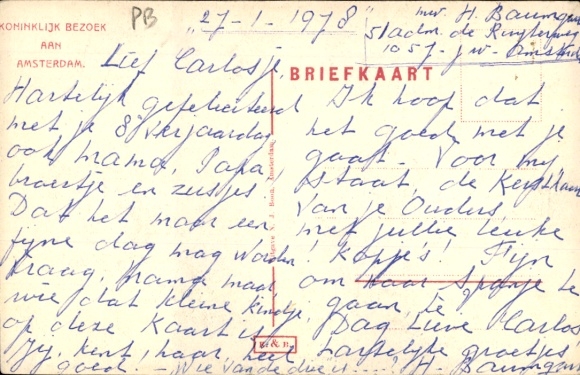 PB
"27-1-1978"
mw. H. Baumgar
51 adm. de Ruyterweg
1057-jw- Amsterd
KONINKLIJK BEZOEK
AAN
AMSTERDAM.
BRIEFKAART
Lief Carlosje,
Hartelijk gefeliciteerd
met je 8 verjaardag
ook mama, Papa,
broertje en zusjes
Dat het maar een
fijne dag mag worden!
Vraag, Mama maar,
wie dat kleine kindje
op deze Kaart is
Jij, kent, haar, heel
goed. - Wie van de drie is
Ik hoop dat
het goed met je
gaat. Voor mij
staat, de Kerstkaart
van je Ouders,
met jullie leuke
Kopje's! Fijn
om naar Spanje te
gaan, hè
Dag Lieve Carlos
hartelijke groetjes
H. Baumgar
Uitgave N. J. Boon, Amsterdam
B. & R.